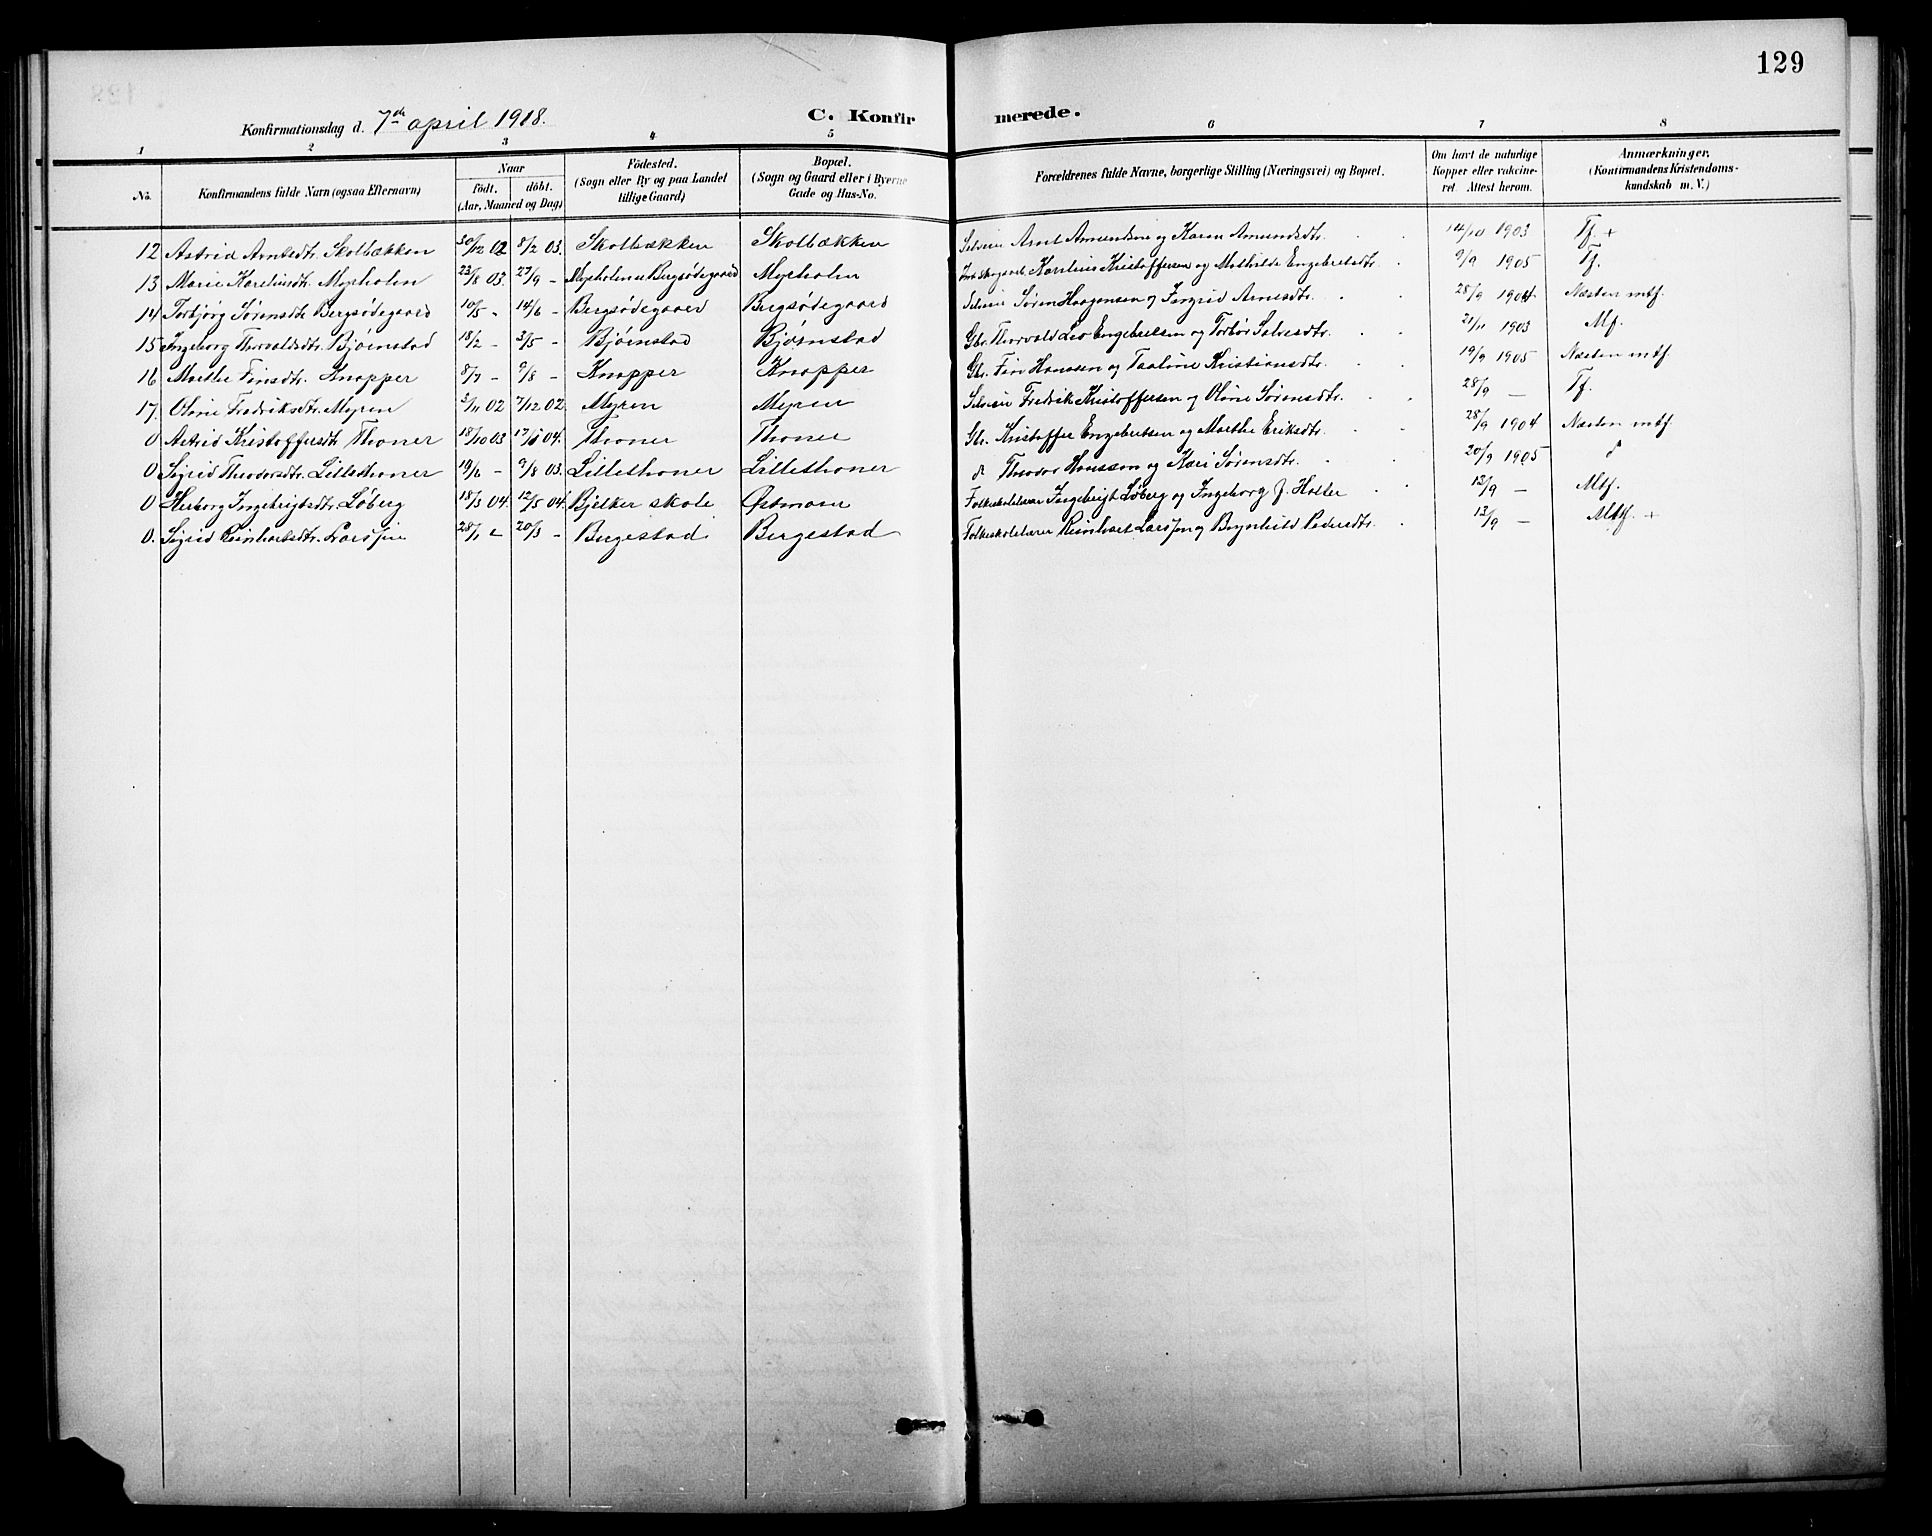 129
Konfirmationsdag d. 7de april 1918.
C. Konfirmerede.
1 2 3 4 5 6 7 8
No.
Konfirmandens fulde Navn (ogsaa Efternavn)
Naar
födt. döbt.
(Aar, Maaned og Dag)
Födested.
(Sogn eller By og paa Landet
tillige Gaard)
Bopæl.
(Sogn og Gaard eller i Byerne
Gade og Hus-No.
Forældrenes fulde Navne, borgerlige Stilling (Næringsvei) og Bopæl.
Om havt de naturlige
Kopper eller vakcine-
ret. Attest herom.
Anmærkninger.
(Konfirmandens Kristendoms-
kundskab m. V.)
12 Astrid Arntsdtr. Skolbækken 30/12 02 8/2 03. Skolbækken Skolbækken Selveier Arnt Amundsen og Karen Amundsdtr. 14/10 1903 Tf. +
13 Marie Karelíusdtr. Myrholen 23/8 03. 27/9 – Myrholen u. Bergsødegaard Myrholen Karelius Kristoffersen og Mathilde Engebretsdtr. 9/9 1905 Tf.
14 Torbjørg Sørensdtr Bergsødegaard 10/5 – 14/6 – Bergsødegaard Bergsødegaard Selveier Søren Haagensen og Ingrid Arnesdtr. 28/9 1904. Næsten mtf.
15 Ingeborg Thorvaldsdtr. Bjørnstad 18/2 – 3/5 – Bjørnstad Bjørnstad Gbr. Thorvald Leo Engebretsen og Torbør Salvesdtr. 21/11 1903 Mf.
16 Marthe Finsdtr. Knapper 8/7 – 9/8 – Knapper Knapper Gbr. Fin Hansen og Taaline Kristiansdtr. 19/9 1905 Næsten mtf.
17. Oline Fredriksdtr. Myren 3/11 02 7/12 02. Myren Myren Selveier Fredrik Kristoffersen og Oline Sørensdtr. 28/9 – Tf.
0 Astrid Kristoffersdtr Thoner 18/10 03 04. Thoner Thoner Gbr. Kristoffer Engebretsen og Marthe Eriksdtr. 28/9 1904 Næsten mtf.
0 Sigrid Theodorsdtr. Lillethoner 19/6 – 9/8 03. Lillethoner Lillethoner Theodor Hanssen og Kari Sørensdtr. 20/9 1905
0 Herborg Ingebrigtsdtr. Løberg 18/3 04. 12/5 04. Bjelker skole Østmoen Folkeskolelærer Ingebrigt Løberg og Ingeborg f. Holter 13/9 – Mtf.
0. Sigrid Reinhartsdtr. Larsen 28/1 – 20/3 – Bergestad Bergestad Folkeskolelærer Reinhart Larsen og Brynhild Pedersdtr. 13/9 – Mtf. +